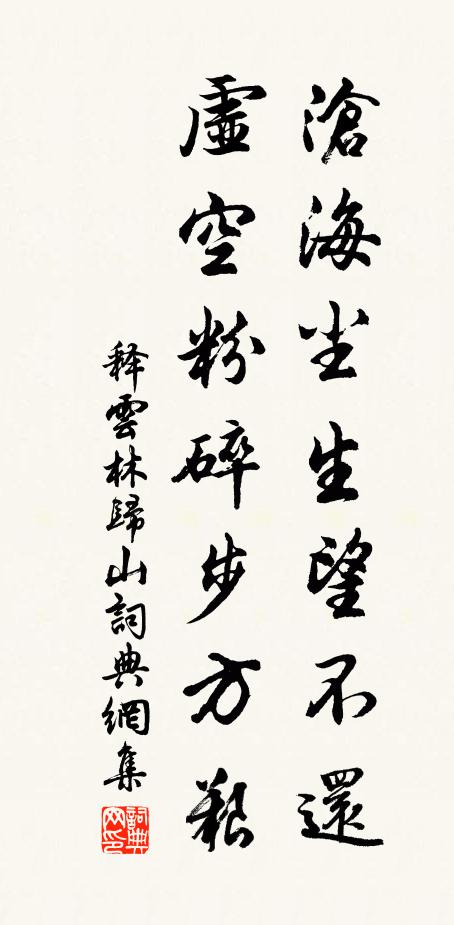 滄海尘生望不還
虛空粉碎步方艱
释雲林歸山詞典網集
詞典
网印